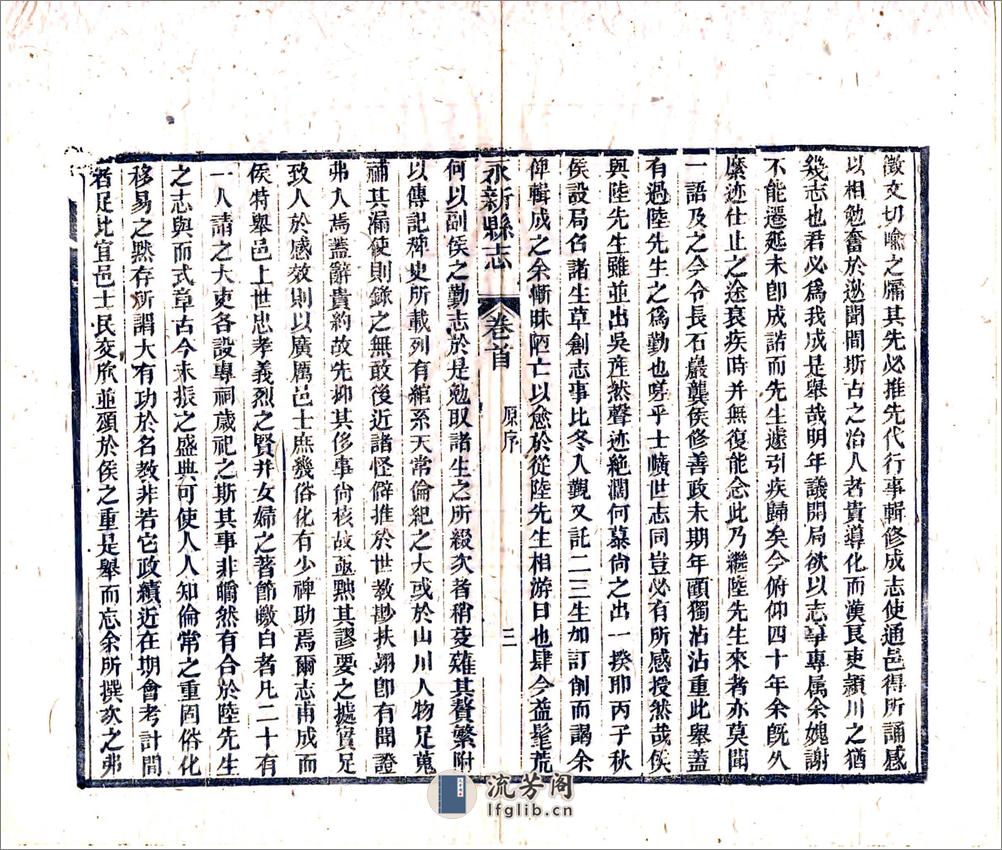 徵文切喻之牖其先必推先代行事輯修成志使通邑得所誦感
以相勉奮於逖聞間斯古之治人者貴導化而漢良吏潁川之猶
幾志也君必為我成是舉哉明年議開局欲以志事專属余媿謝
不能遷延未卽成諾而先生遽引疾歸矣今俯仰四十年余旣久
縻迹仕止之途衰疾時并無復能念此乃繼陸先生來者亦莫聞
一語及之今令長石巖龔侯修善政未期年顧獨沾沾重此舉蓋
有過陸先生之為勤也嗟乎士曠世志同豈必有所感授然哉侯
與陸先生雖並出吳產然聲迹絶濶何慕尚之出一揆耶丙子秋
侯設局名諸生草創志事比冬入覲又託二三生加訂創而謁余
俾輯成之余慚昧陋亡以愈於從陸先生相游日也肆今益髦荒
永新縣志
卷首
原序
三
何以副侯之勤志於是勉取諸生之所綴次者稍芟薙其贅繁附
以傳記稗史所載列有綰系天常倫紀之大或於山川人物足蒐
補其漏使則錄之無敢後近諸怪僻推於世教尠扶翊卽有聞證
弗入焉蓋辭貴約故先抑其侈事尚核故亟黜其謬要之摭實足
致人於感效則以廣厲邑士庶幾俗化有少裨助焉爾志甫成而
侯特舉邑上世忠孝義烈之賢并女婦之著節皦白者凡二十有
一人請之大吏各設專祠歲祀之斯其事非皭然有合於陸先生
之志與而式章古今未振之盛典可使人人知倫常之重固俗化
移易之黙存所謂大有功於名教非若它政績近在期會考計間
者足比宜邑士民交欣並頌於侯之重是舉而忘余所撰次之弗
流芳阁
lfglib.cn